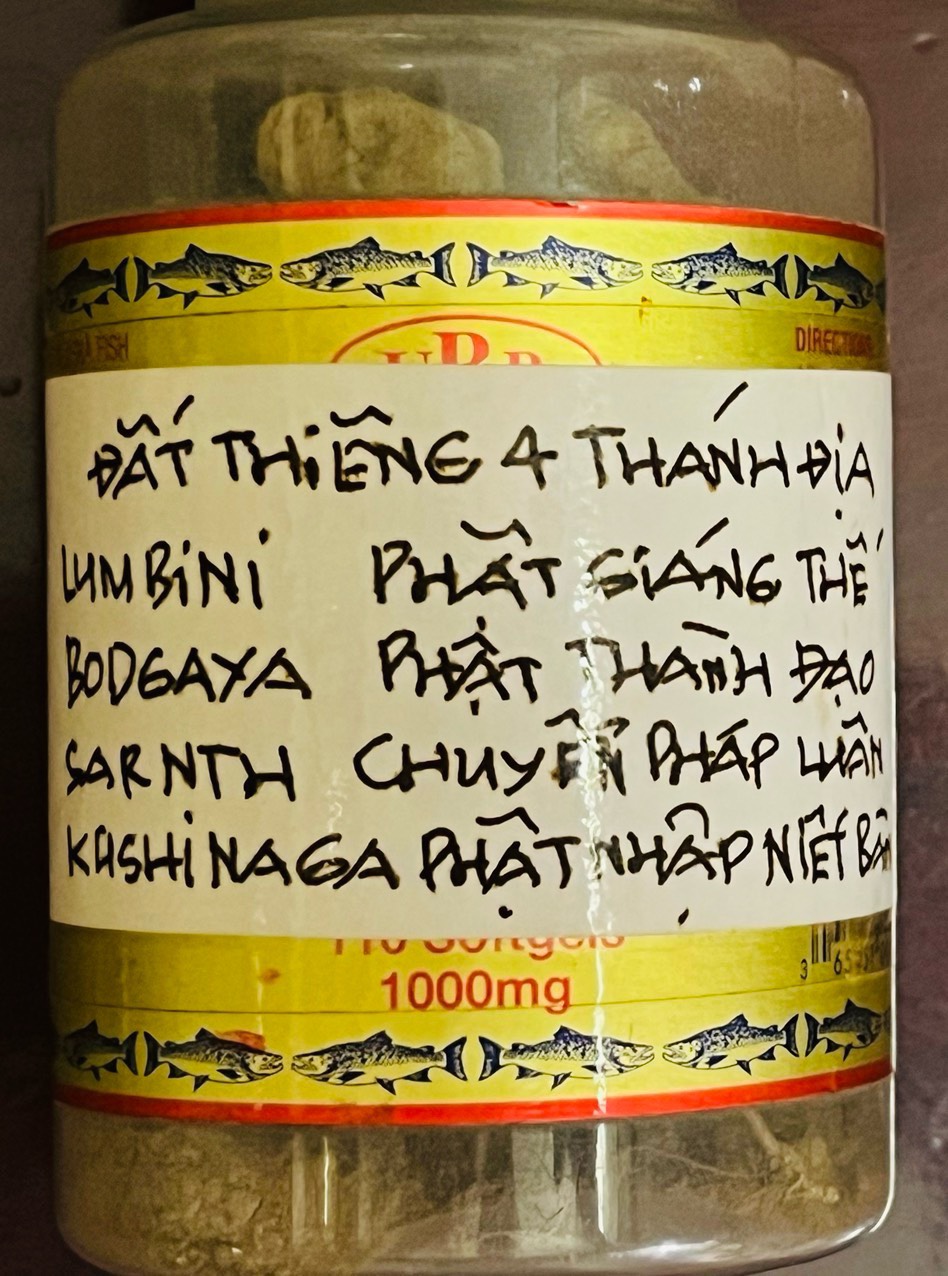 DIRECTIONS
ĐẤT THIÊNG 4 THÁNH ĐỊA
LUMBINI PHẬT GIÁNG THẾ
BODGAYA PHẬT THÀNH ĐẠO
SARNTH CHUYỂN PHÁP LUÂN
KUSHINAGA PHẬT NHẬP NIẾT BÀN
110 Softgels
1000mg